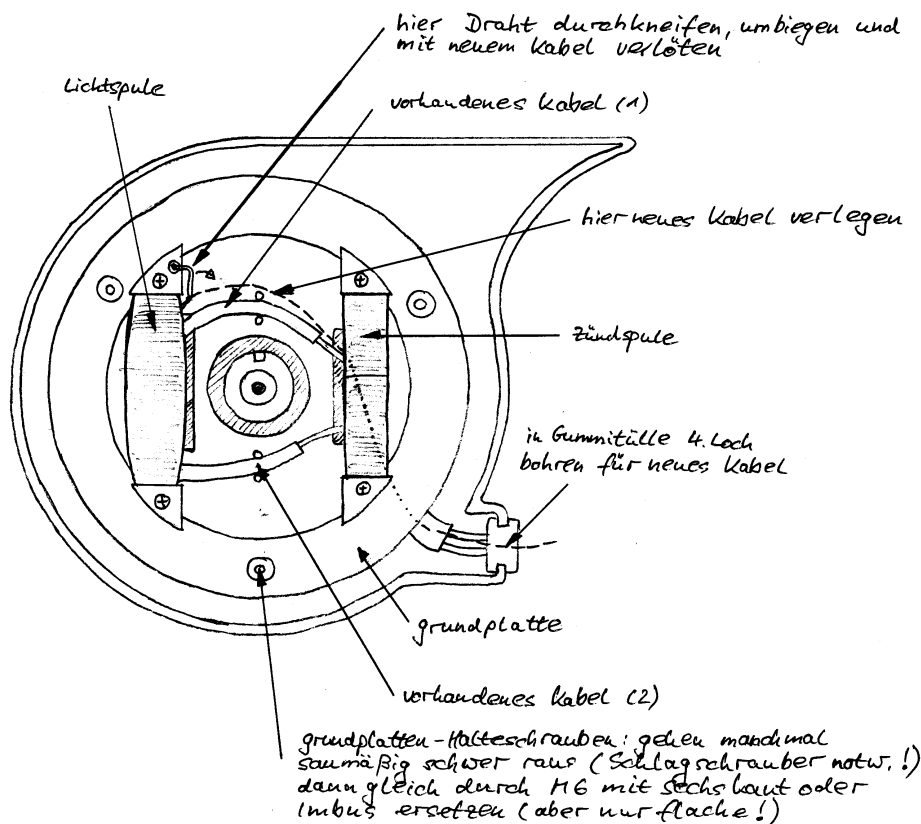 hier Draht durchkneifen, umbiegen und
mit neuem Kabel verlöten
Lichtspule
vorhandenes Kabel (1)
hier neues Kabel verlegen
Zündspule
in Gummitülle 4. Loch
bohren für neues Kabel
grundplatte
vorhandenes Kabel (2)
grundplatten-Halteschrauben: gehen manchmal
saumäßig schwer raus (Schlagschrauber notw.!)
dann gleich durch M6 mit Sechskant oder
Imbus ersetzen (aber nur flache!)